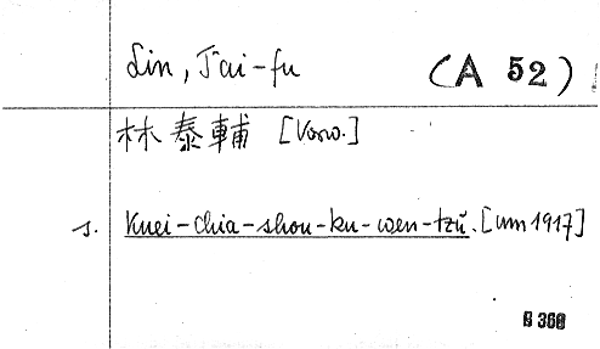 Lin, T'ai-fu (A 52)
林泰輔 [Vorw.]
s. Kuei-chia-shou-ku-wen-tzŭ. [um 1917]
B 368